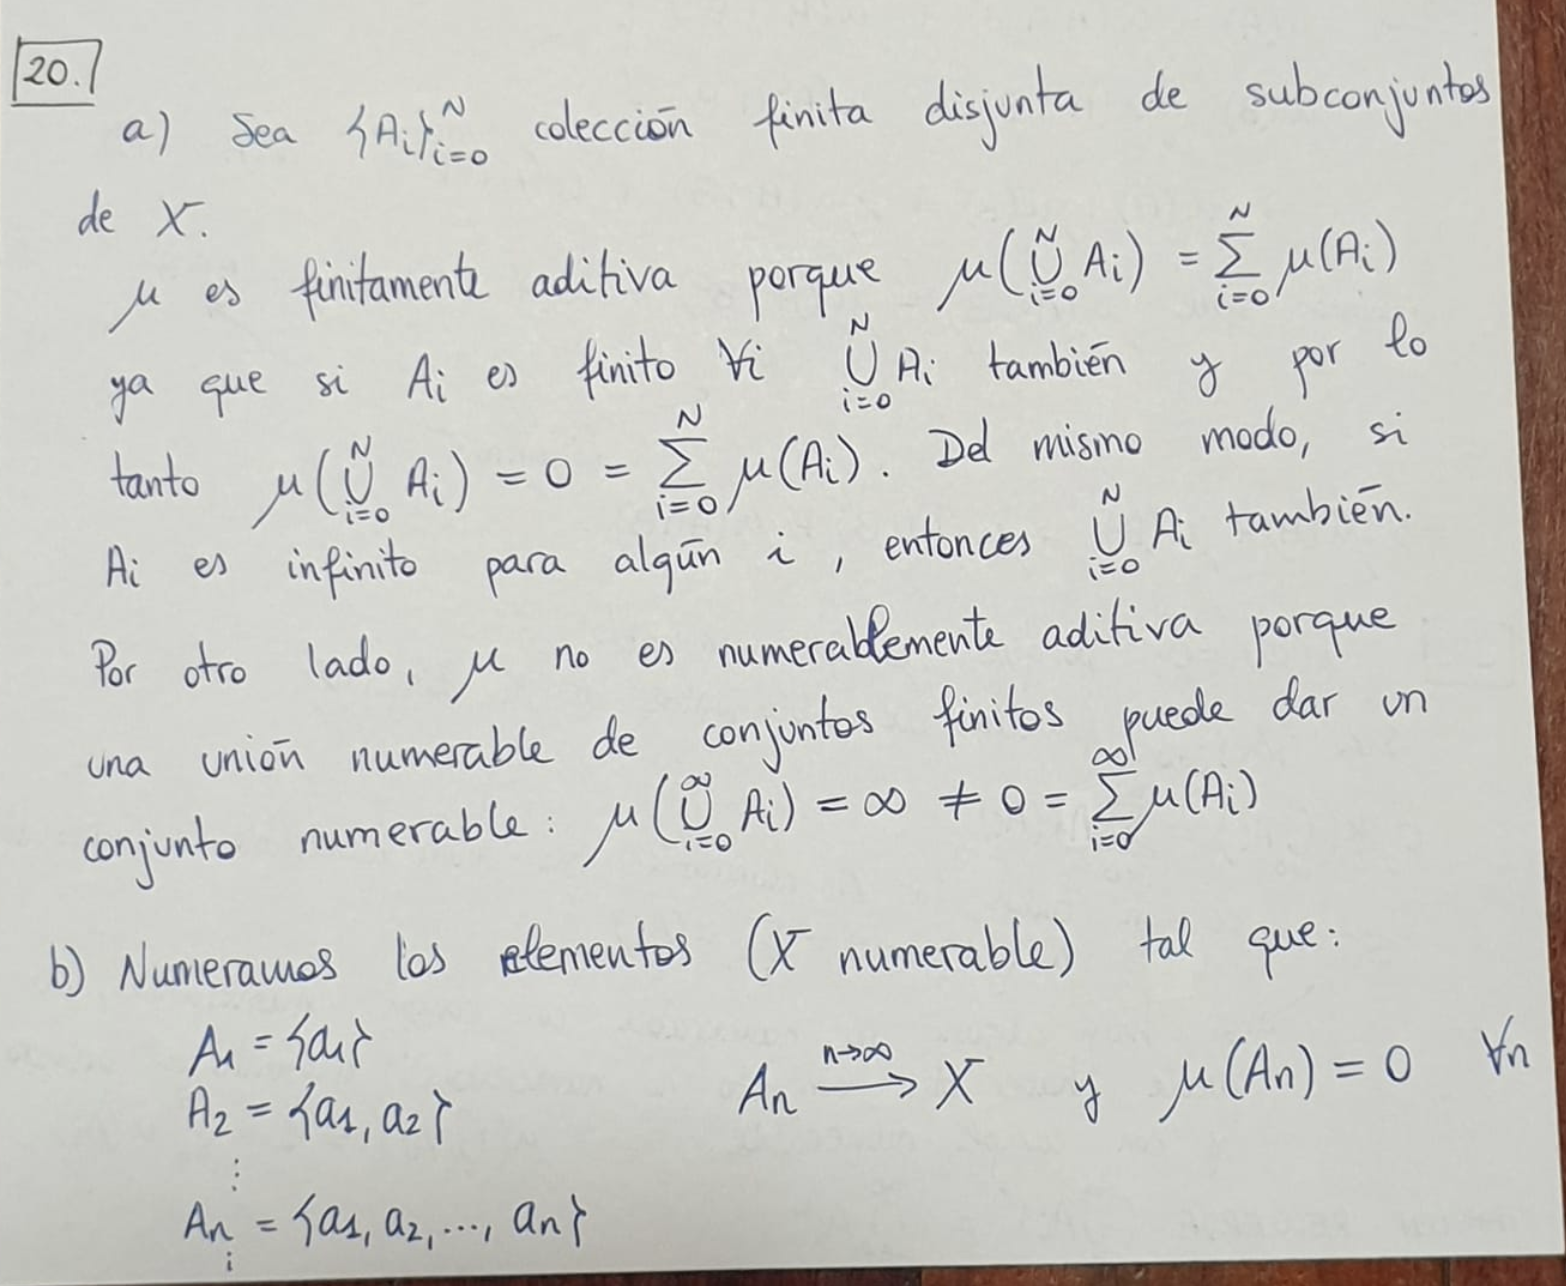 20.
a) Sea {Ai}_{i=0}^{N} colección finita disjunta de subconjuntos
de X.
μ es finitamente aditiva porque μ(⋃_{i=0}^{N} Ai) = ∑_{i=0}^{N} μ(Ai)
ya que si Ai es finito ∀i ⋃_{i=0}^{N} Ai también y por lo
tanto μ(⋃_{i=0}^{N} Ai) = 0 = ∑_{i=0}^{N} μ(Ai). Del mismo modo, si
Ai es infinito para algún i, entonces ⋃_{i=0}^{N} Ai también.
Por otro lado, μ no es numerablemente aditiva porque
una unión numerable de conjuntos finitos puede dar un
conjunto numerable: μ(⋃_{i=0}^{∞} Ai) = ∞ ≠ 0 = ∑_{i=0}^{∞} μ(Ai)
b) Numeramos los elementos (X numerable) tal que:
A1 = {a1}
A2 = {a1, a2}
⋮
An = {a1, a2, ..., an}
⋮
An →^{n→∞} X y μ(An) = 0 ∀n